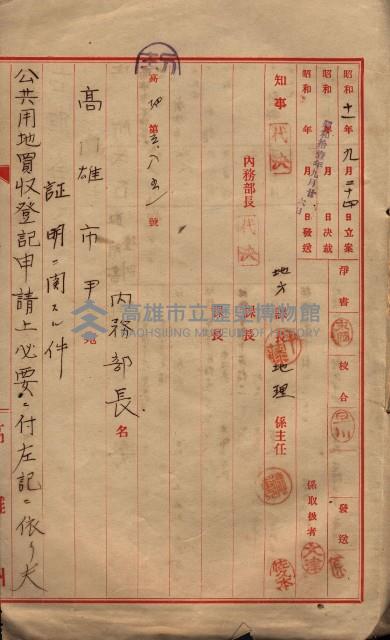 昭和十一年九月二十四日立案 淨書 校合 發送
昭和 年 月 日決裁
昭和 年 月 日發送 係取扱者
知事 代決 地方課長 地理係主任
內務部長 代決 課長
課長
高地第 號
內務部長名
高雄市尹宛
証明ニ関スル件
公共用地買収登記申請上必要ニ付左記ニ依リ
高雄市立歷史博物館
KAOHSIUNG MUSEUM OF HISTORY